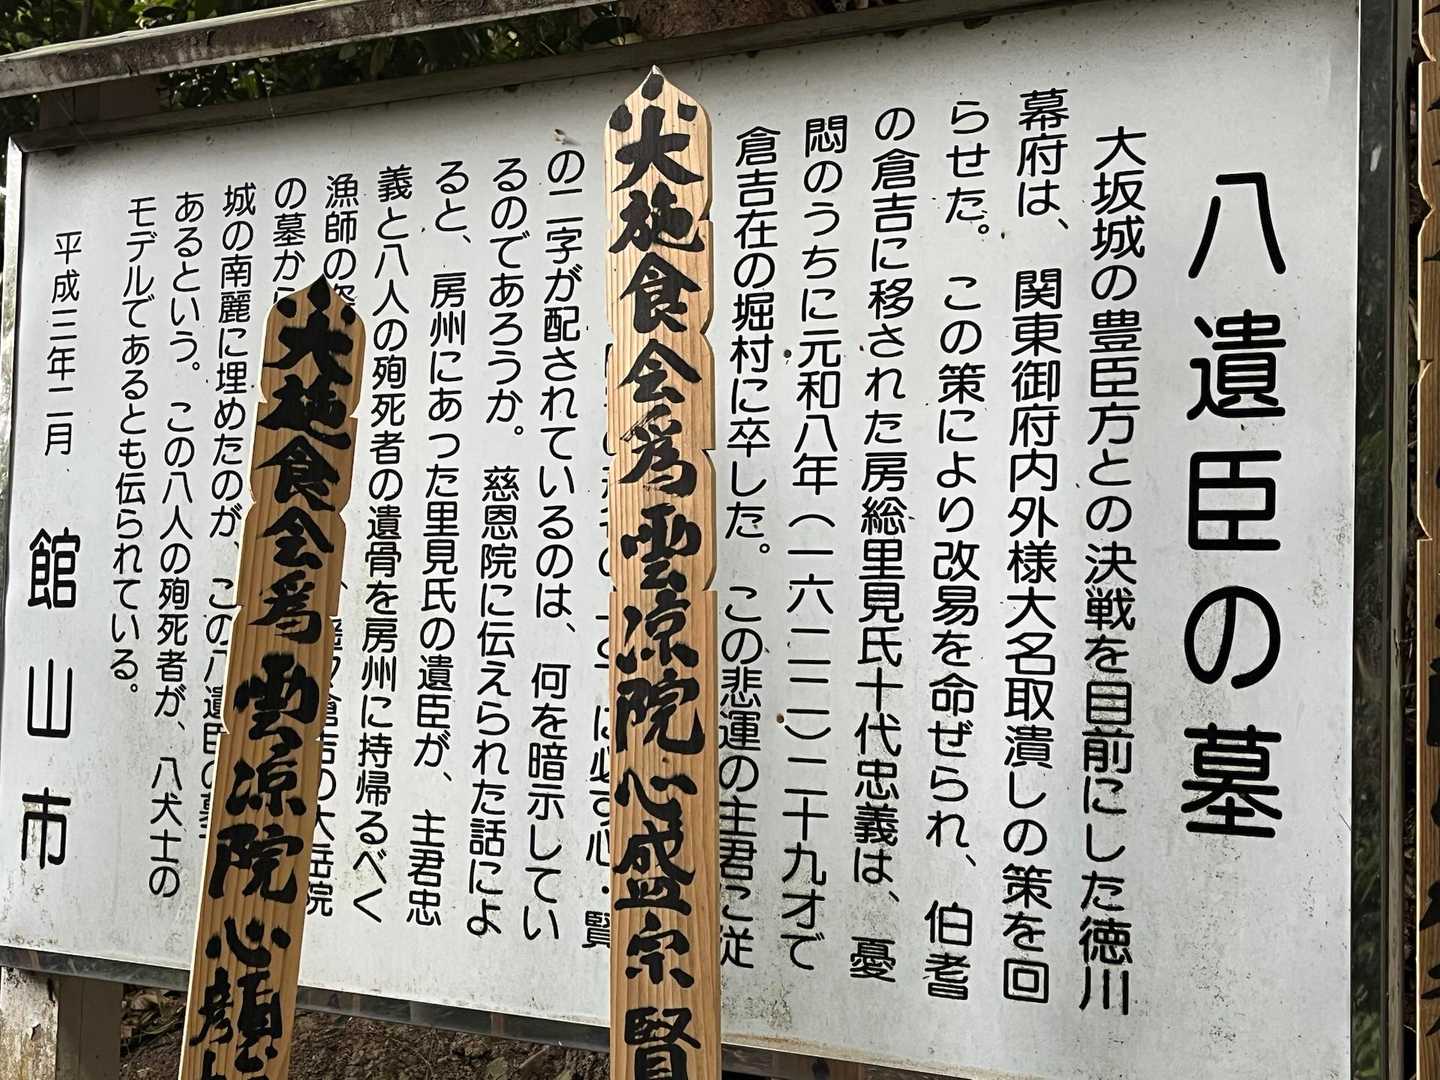 八遺臣の墓
大坂城の豊臣方との決戦を目前にした徳川
幕府は、関東御府内外様大名取潰しの策を回
らせた。この策により改易を命ぜられ、伯耆
の倉吉に移された房総里見氏十代忠義は、憂
悶のうちに元和八年(一六二二)二十九才で
倉吉在の堀村に卒した。この悲運の主君に従
には必ず心・賢
の二字が配されているのは、何を暗示してい
るのであろうか。慈恩院に伝えられた話によ
ると、房州にあった里見氏の遺臣が、主君忠
義と八人の殉死者の遺骨を房州に持帰るべく
漁師の姿
倉吉の大岳院
の墓から
城の南麓に埋めたのが、この八遺臣の墓
あるという。この八人の殉死者が、八犬士の
モデルであるとも伝られている。
平成三年二月 館山市
大施食会為雲凉院心盛宗賢
大施食会為雲凉院心顔